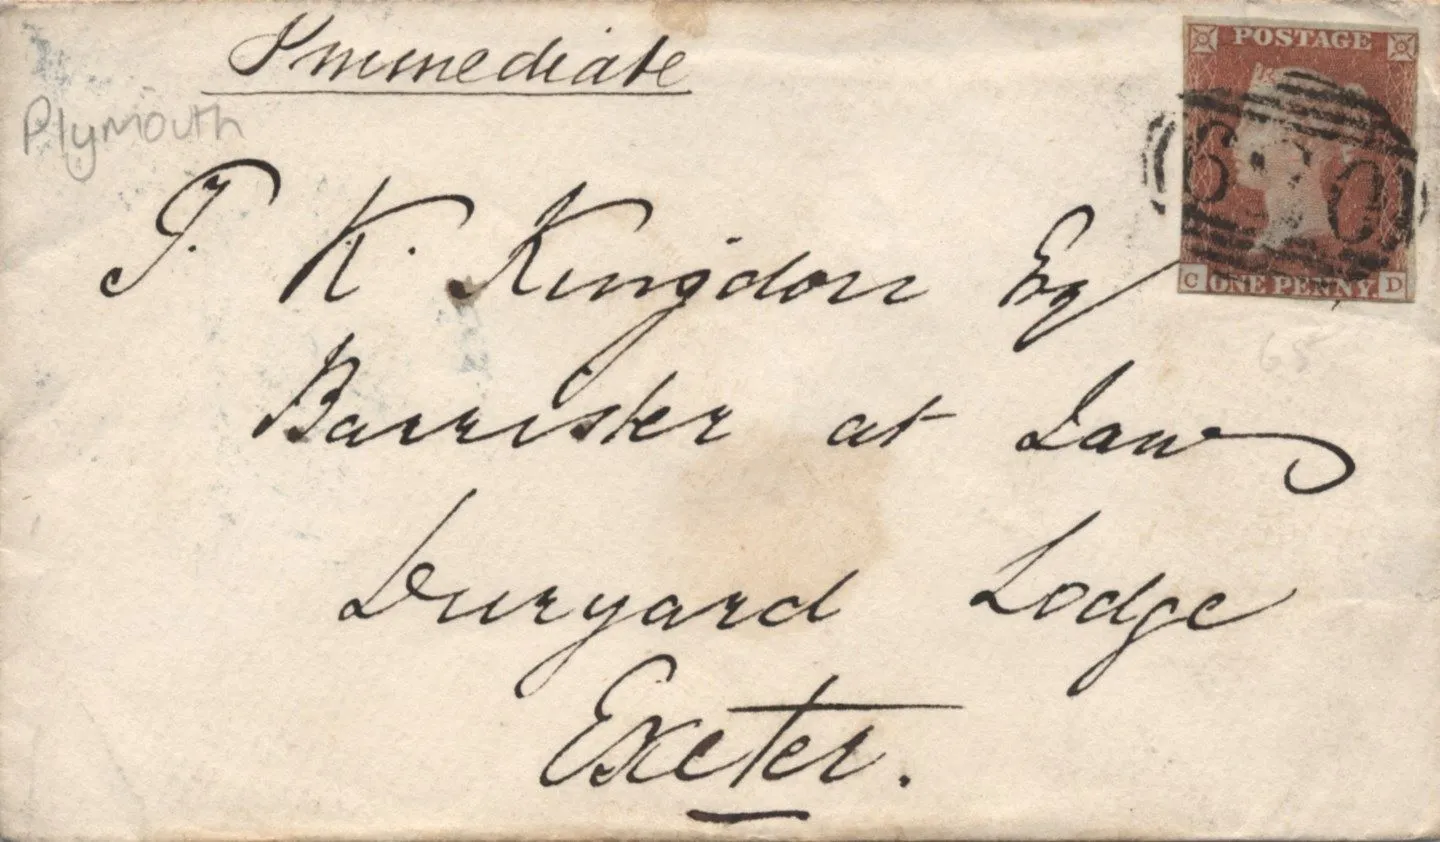 Immediate
Plymouth
T. K. Kingdon Esq
Barrister at Law
Duryard Lodge
Exeter.
POSTAGE
C ONE PENNY. D
65